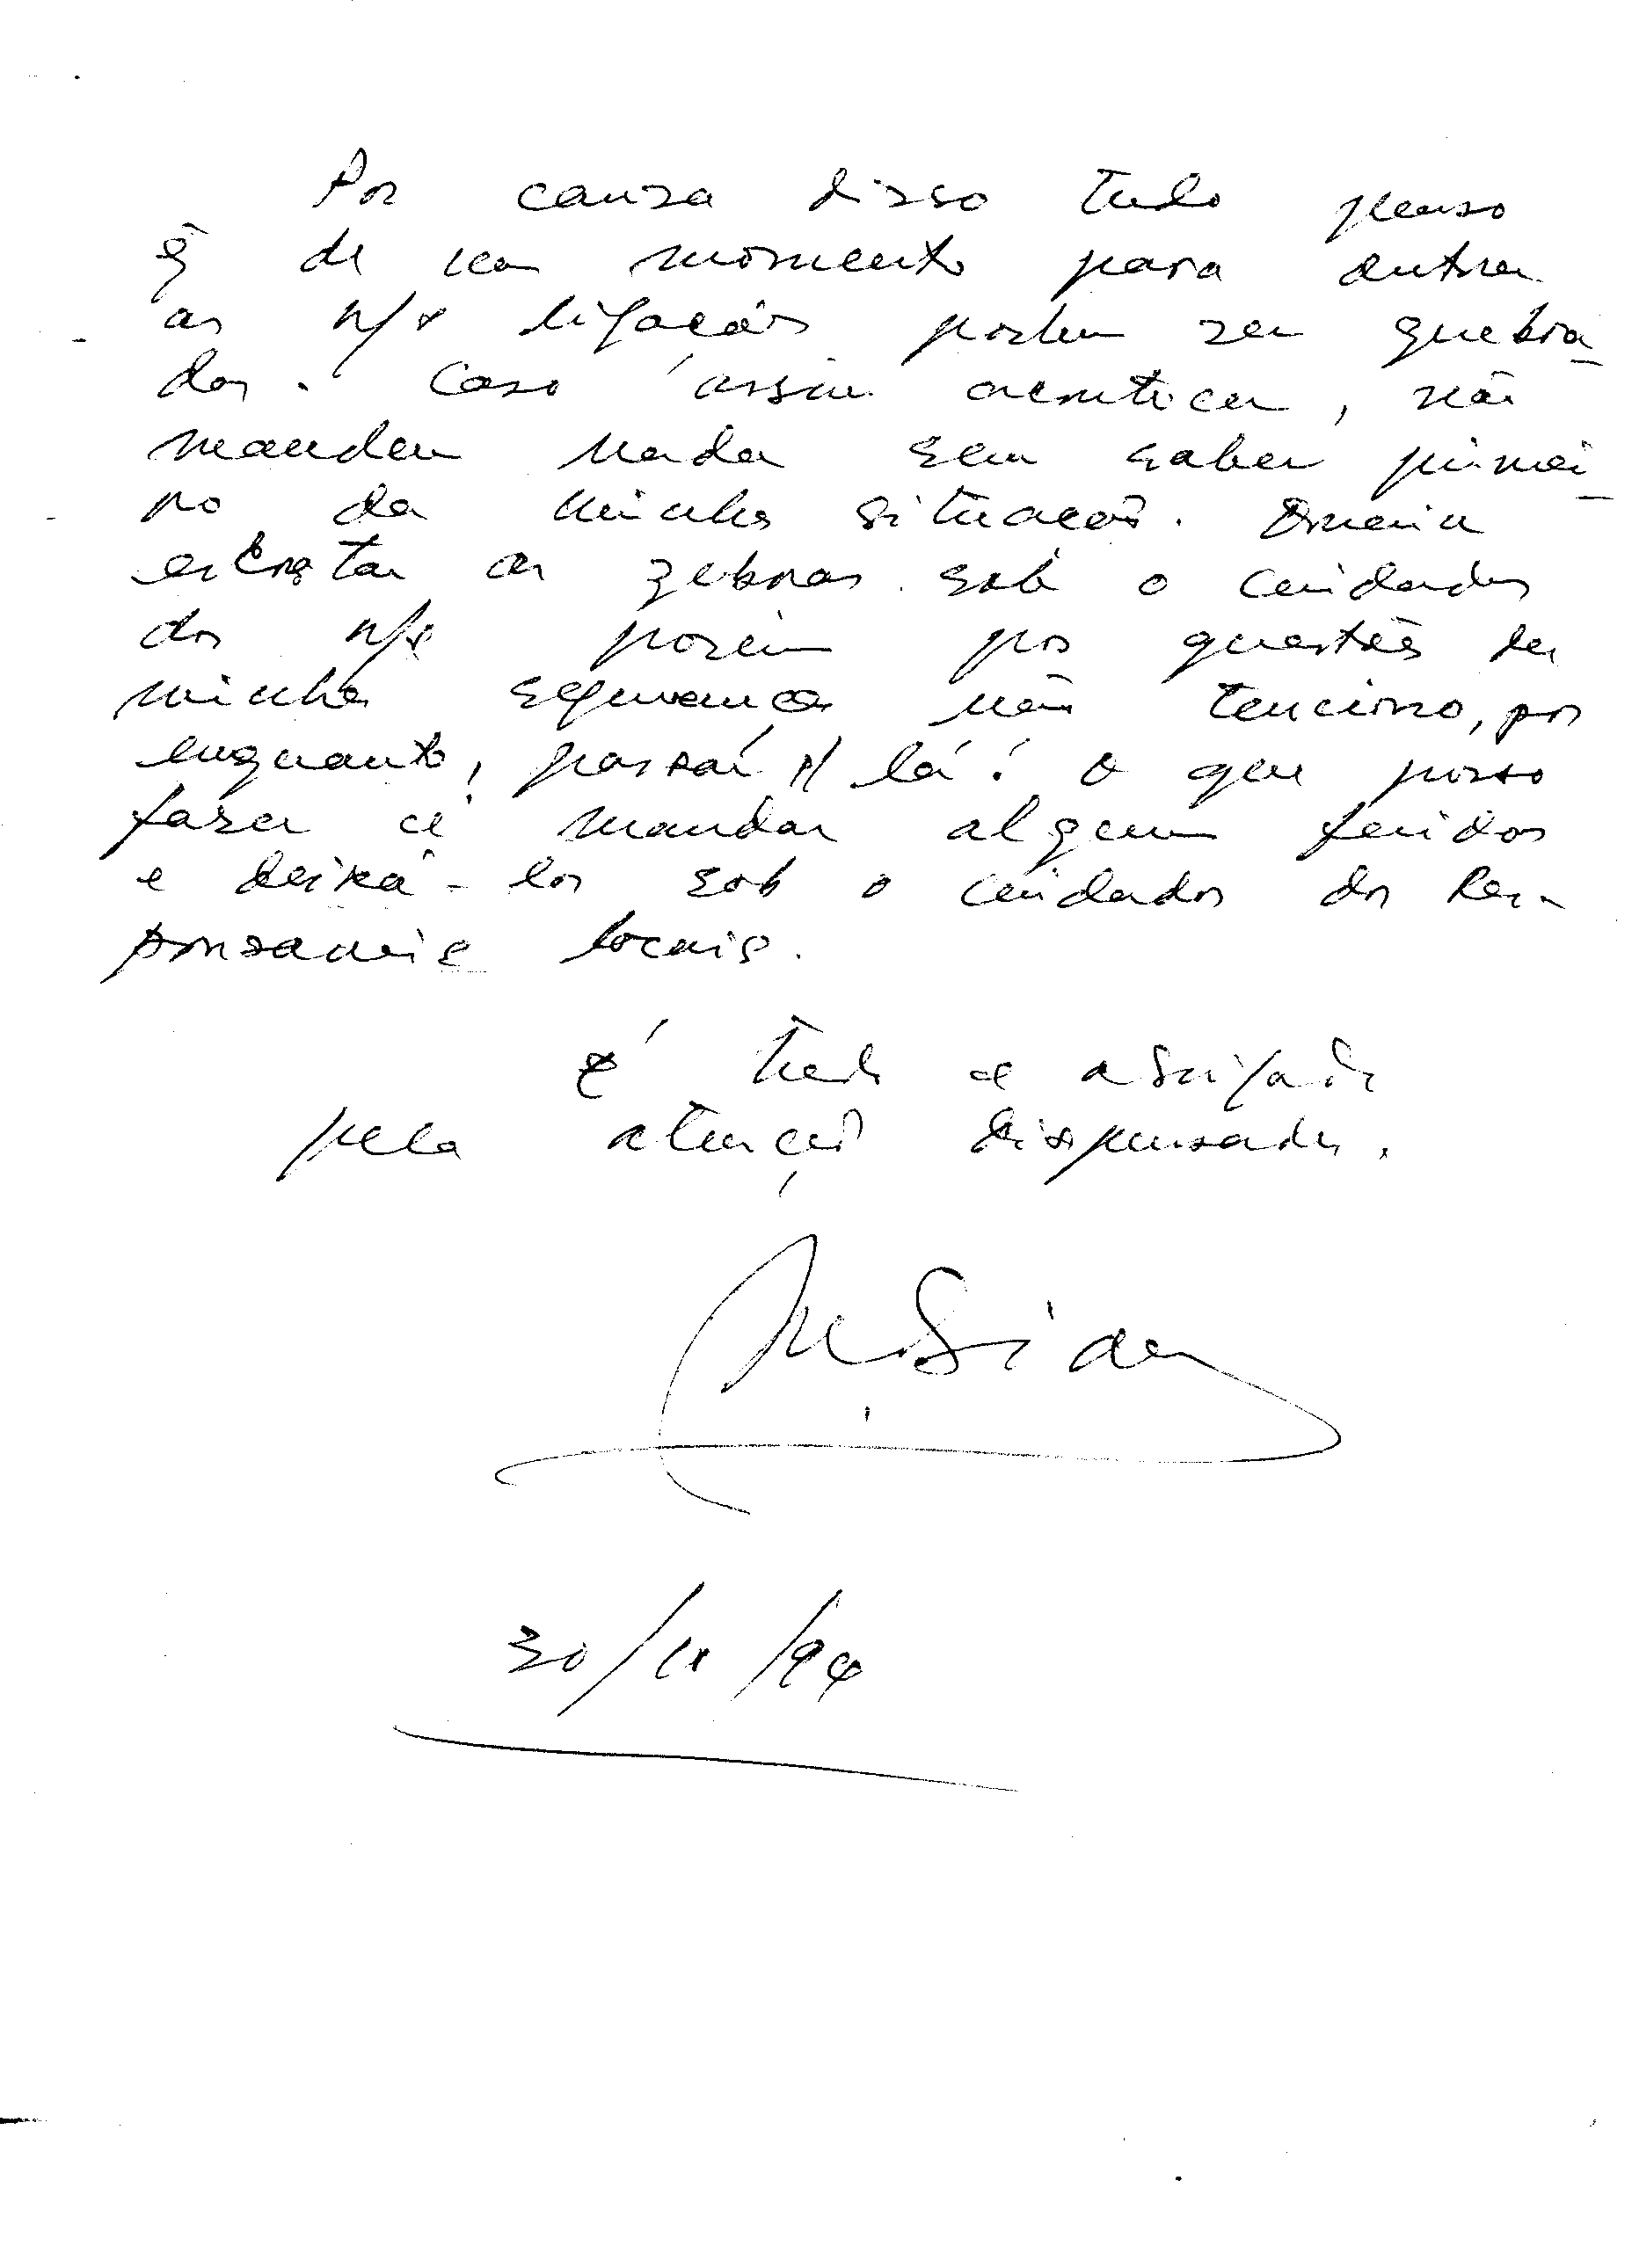 Por causa disso tudo penso
q̃ de um momento para outro
as n/s ligações podem ser quebra-
das. Caso assim aconteça, não
mandem nada sem saber primei-
ro da minha situação. Queria
as zebras sob o cuidados
dos n/s porém por questões de
minha segurança não tenciono, por
enquanto, passar p/ lá! O que posso
fazer é mandar algum feridos
e deixá-los sob o cuidados dos Res-
ponsaveis locais.
É tudo e abrigado
pela atenção dispensada.
30/11/94